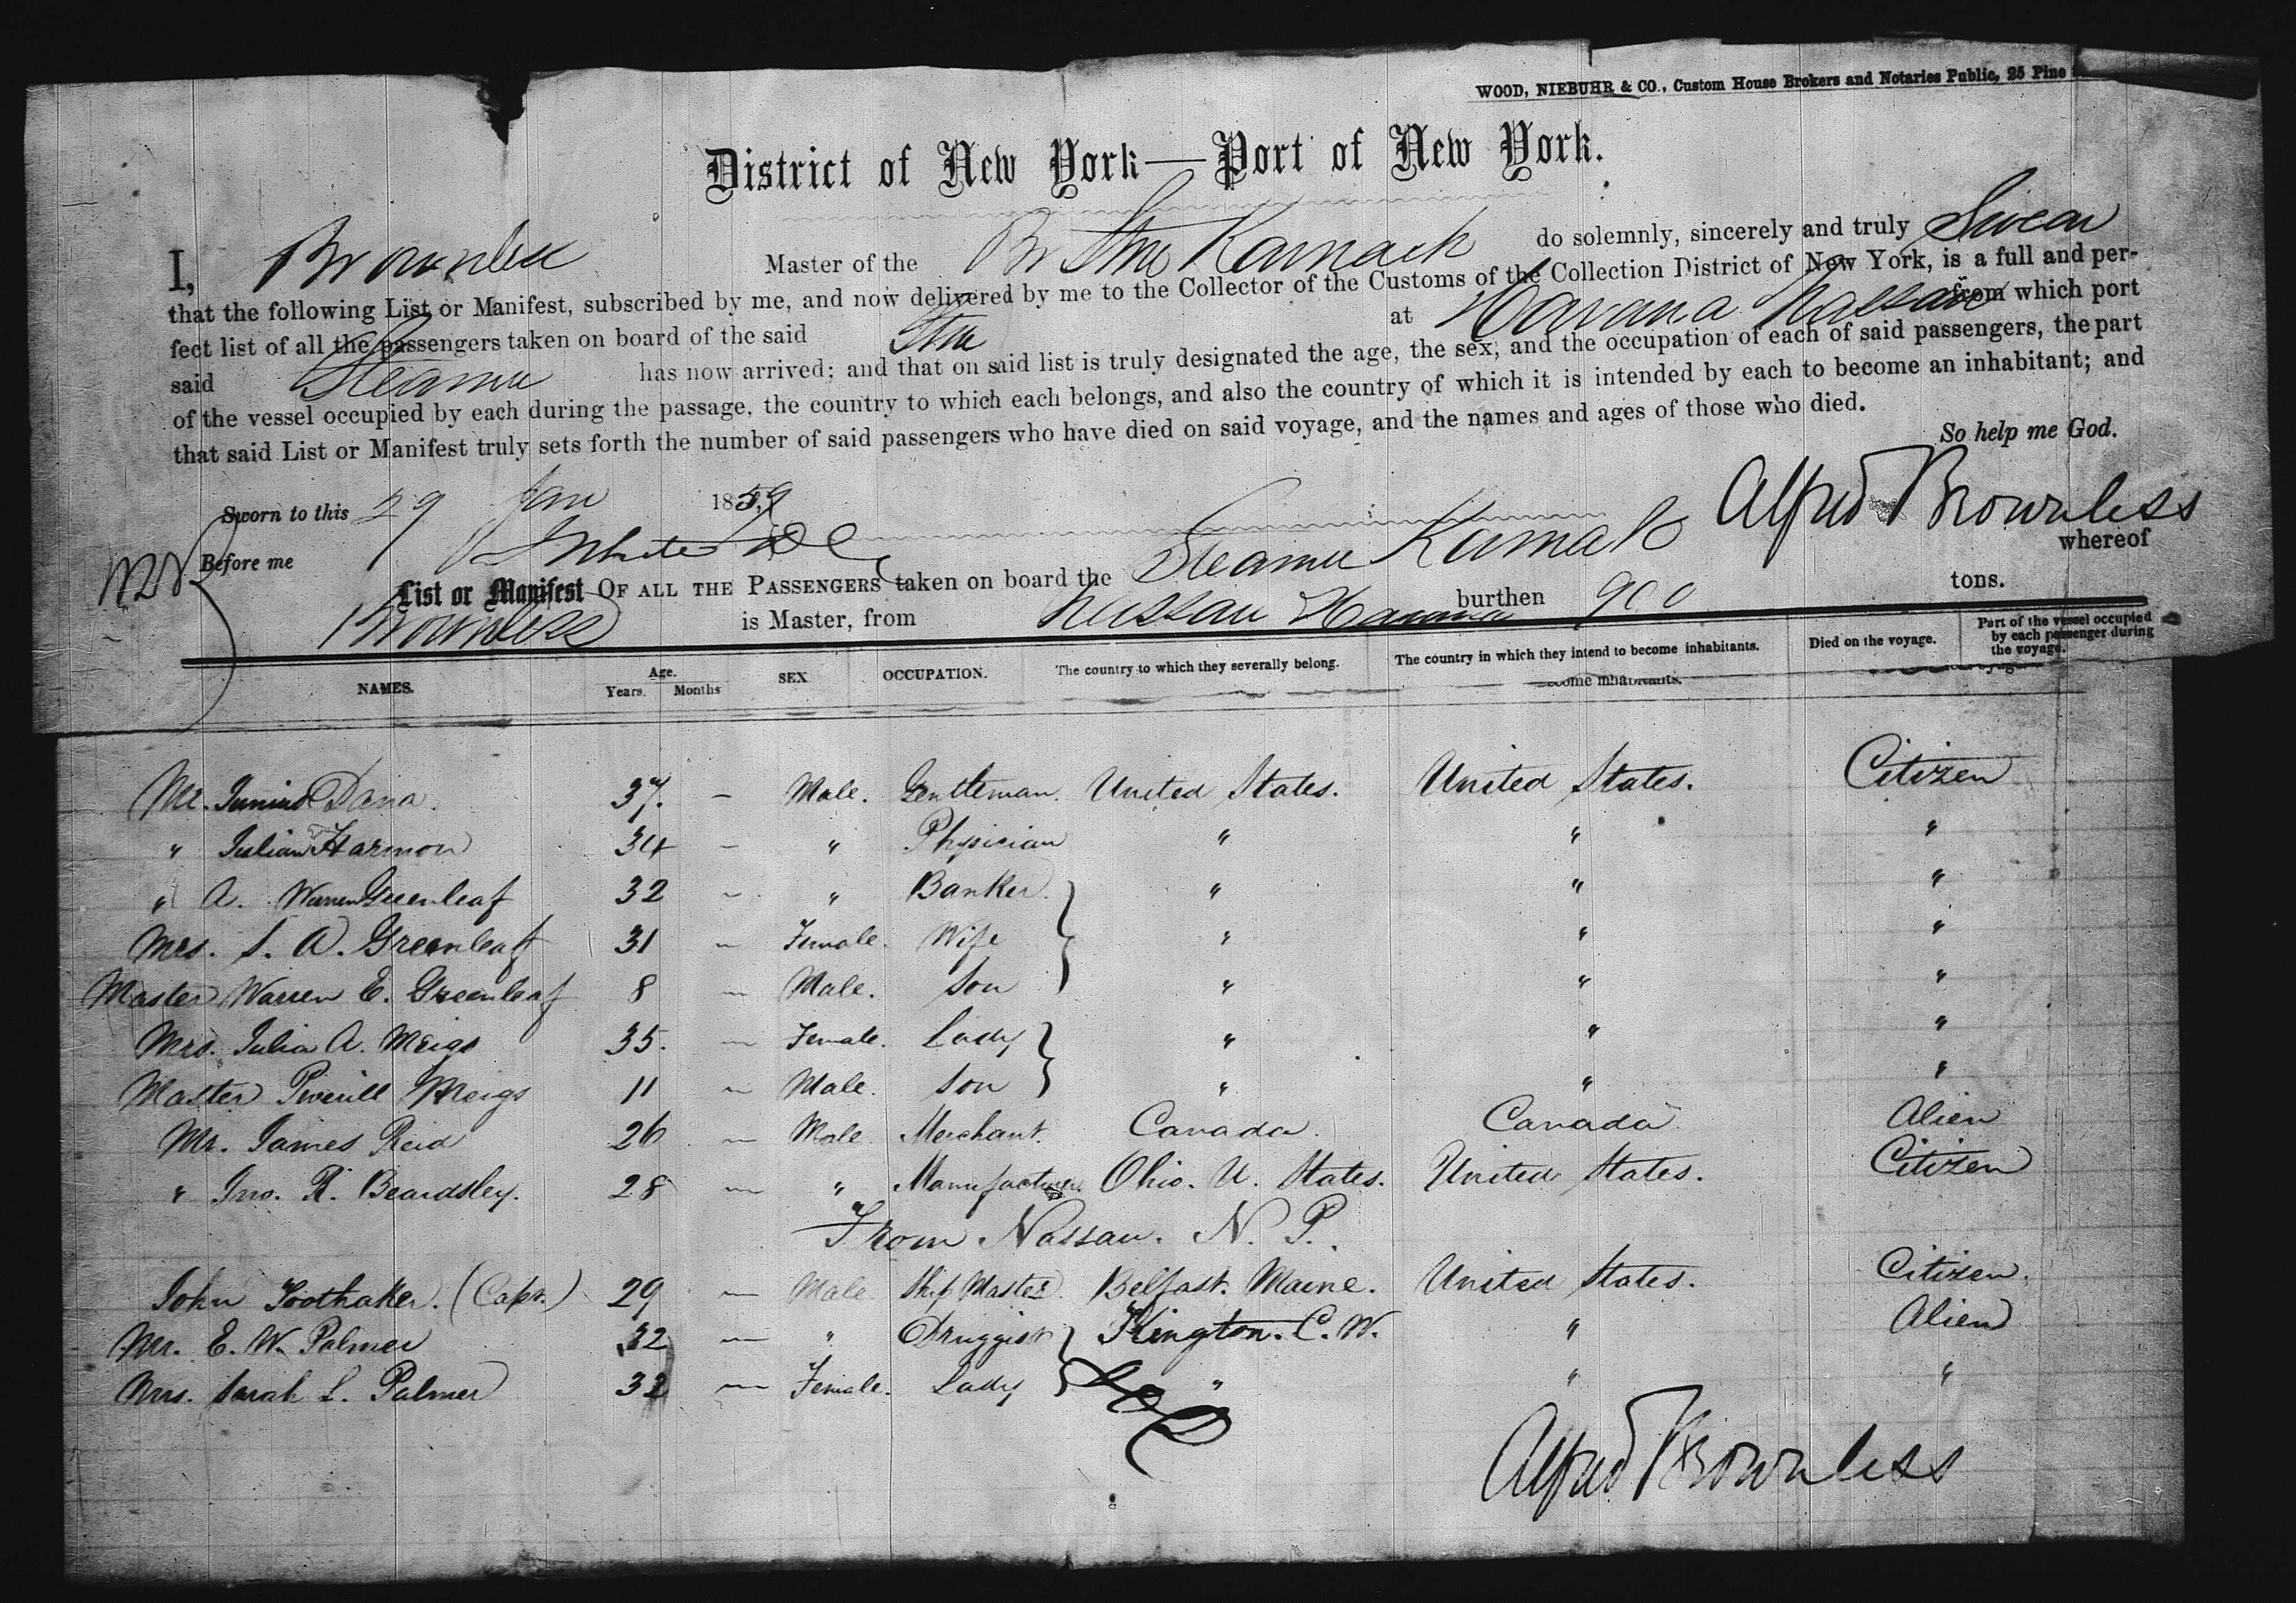 WOOD, NIEBUHR & CO., Custom House Brokers and Notaries Public, 25 Pine
District of New York—Port of New York.
I, Brownless Master of the Br Stm Karnack do solemnly, sincerely and truly Swear
that the following List or Manifest, subscribed by me, and now delivered by me to the Collector of the Customs of the Collection District of New York, is a full and per-
fect list of all the passengers taken on board of the said Stm at Havana Nassau from which port
said Steamer has now arrived; and that on said list is truly designated the age, the sex, and the occupation of each of said passengers, the part
of the vessel occupied by each during the passage, the country to which each belongs, and also the country of which it is intended by each to become an inhabitant; and
that said List or Manifest truly sets forth the number of said passengers who have died on said voyage, and the names and ages of those who died.
So help me God.
Sworn to this 29 Jan 1859 Alfred Brownless
Before me White
List or Manifest OF ALL THE PASSENGERS taken on board the Steamer Karnak whereof
Brownless is Master, from Nassau Havana burthen 900 tons.
NAMES. Age. Years. Months SEX OCCUPATION. The country to which they severally belong. The country in which they intend to become inhabitants. Died on the voyage. Part of the vessel occupied by each passenger during the voyage.
become inhabitants.
Mr. Junius Dana. 37. – Male. Gentleman. United States. United States. Citizen
" Julian Harmon 34 – " Physician " " "
" A. Warren Greenleaf 32 – " Banker " " "
Mrs. S. A. Greenleaf 31 – Female. Wife " " "
Master Warren E. Greenleaf 8 – Male. Son " " "
Mrs. Julia A. Meigs 35. – Female. Lady " " "
Master Meigs 11 – Male. Son " " "
Mr. James Reid 26 – Male Merchant. Canada. Canada Alien
" Jno. R. Beardsley. 28 – " Manufacturer Ohio. U. States. United States. Citizen
From Nassau. N. P.
John Toothaker. (Capt.) 29 – Male Ship Master Belfast. Maine. United States. Citizen.
Mr. E. W. Palmer 32 – " Druggist Kington. C. W. " Alien
Mrs. Sarah L. Palmer 32 – Female. Lady " " "
Alfred Brownless